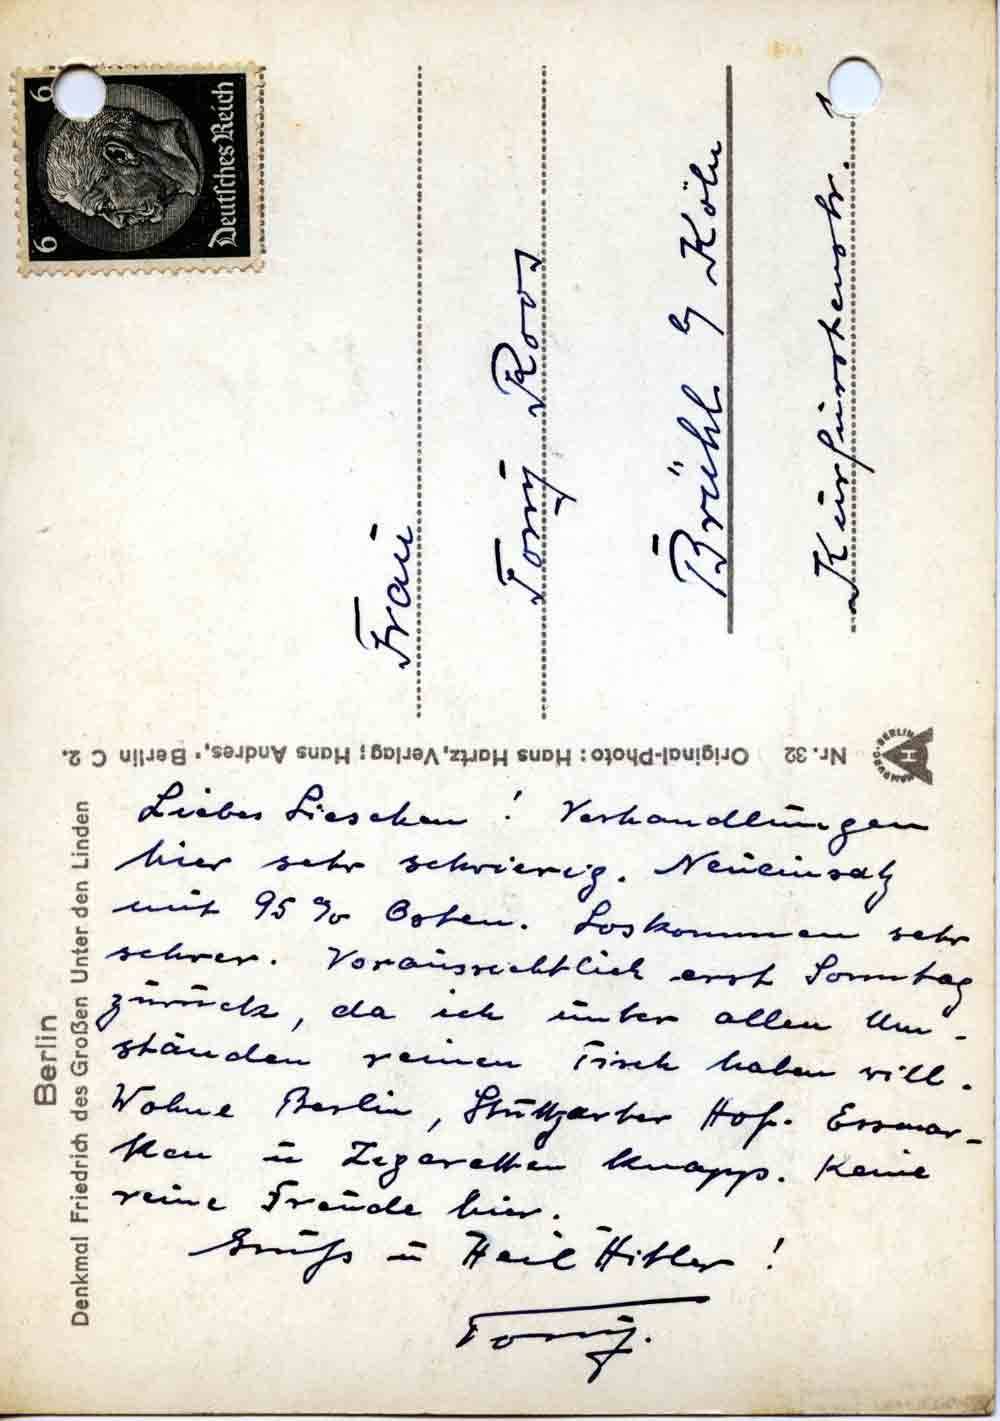 6
6
Deutsches Reich
Frau
Tony Roos
Brühl b/ Köln
Kurfürstenstr.
Nr. 32 Original-Photo: Hans Hartz, Verlag: Hans Andres, · Berlin C 2.
HAMBURG-BERLIN
H
Berlin
Denkmal Friedrich des Großen Unter den Linden
Liebes Lieschen! Verhandlungen
hier sehr schwierig. Neueinsatz
mit 95 % Osten. Loskommen sehr
schwer. Voraussichtlich erst Sonntag
zurück, da ich unter allen Um-
ständen reinen Tisch haben will.
Wohne Berlin, Stuttgarter Hof. Essmar-
ken u Zigaretten knapp. Keine
reine Freude hier.
Gruß u Heil Hitler!
Tony.